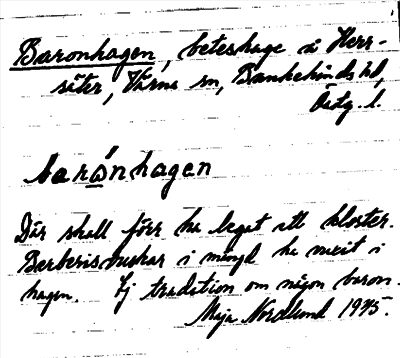 Baronhagen, beteshage i Herr-
säter, Värna sn, Bankekinds hd,
Östg. l.
barónhagen
Där skall förr ha legat ett kloster.
Berberisbuskar i mängd ha vuxit i
hagen. Ej tradition om någon baron.
Maja Nordlund 1935.